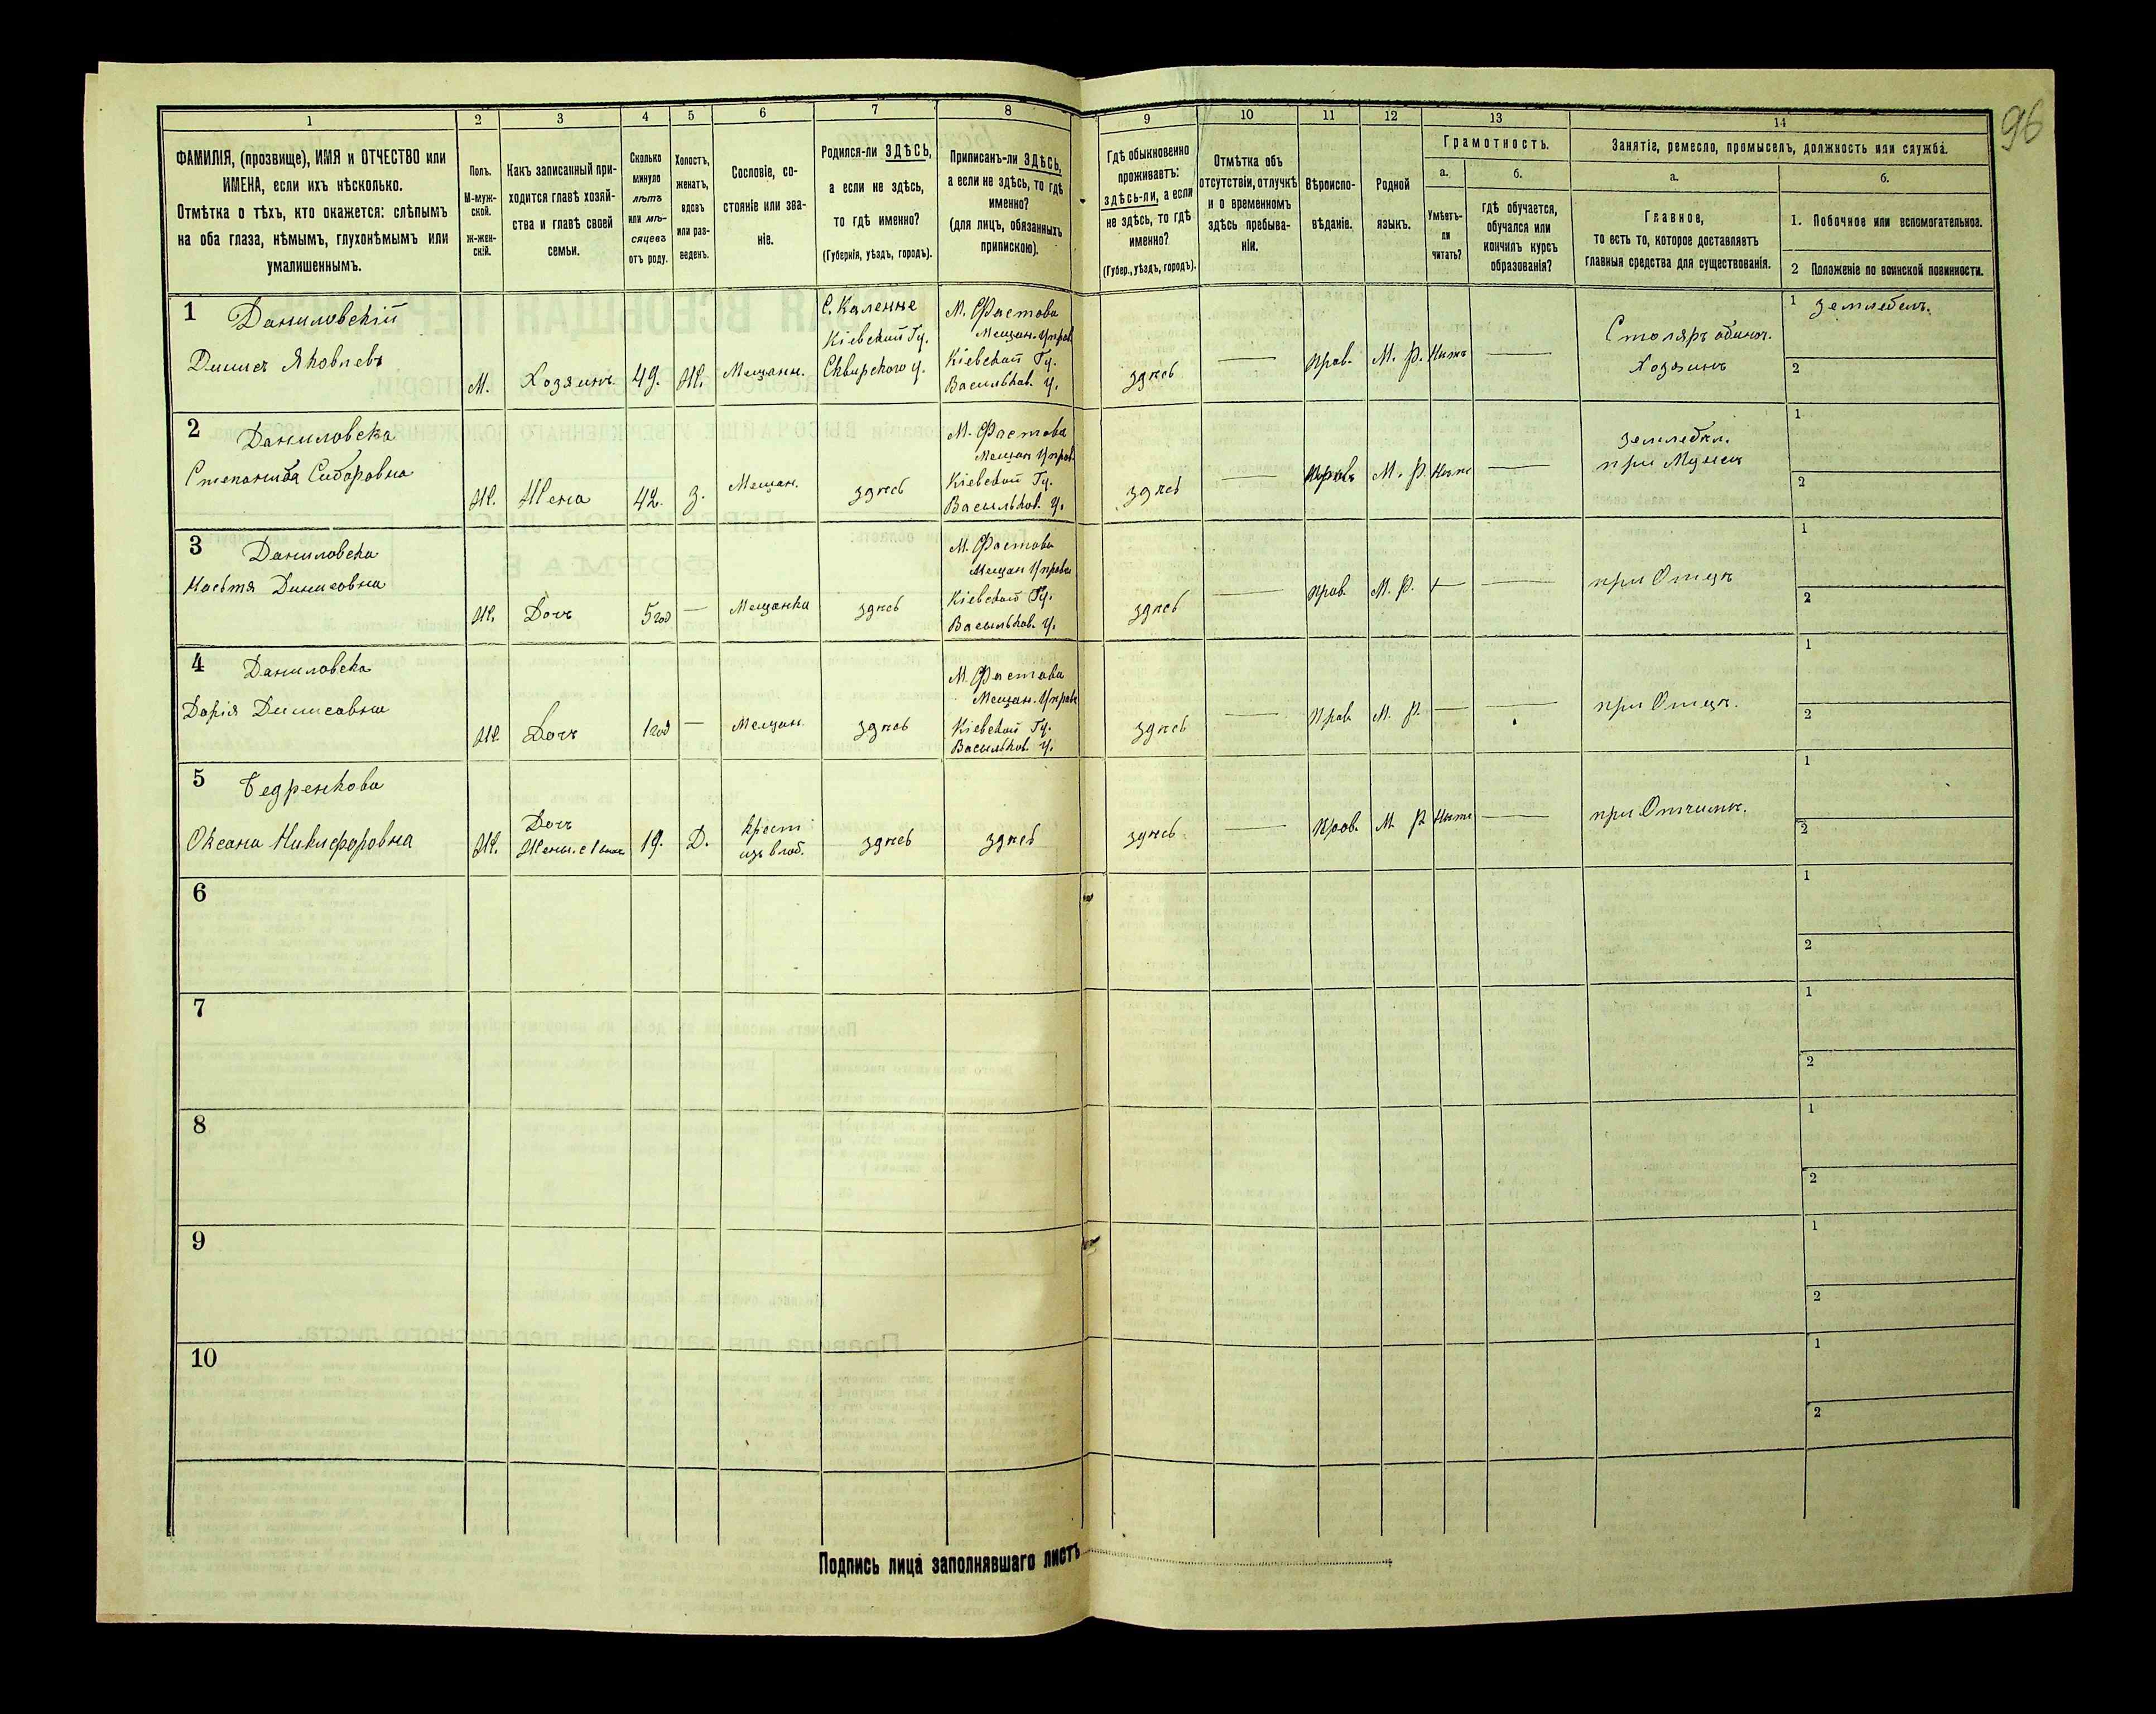 96
1 2 3 4 5 6 7 8 9 10 11 12 13 14
ФАМИЛІЯ, (прозвище), ИМЯ и ОТЧЕСТВО или
ИМЕНА, если ихъ нѣсколько.
Отмѣтка о тѣхъ, кто окажется: слѣпымъ
на оба глаза, нѣмымъ, глухонѣмымъ или
умалишеннымъ.
Полъ.
М-муж-
ской.
Ж-жен-
скій.
Какъ записанный при-
ходится главѣ хозяй-
ства и главѣ своей
семьи.
Сколько
минуло
лѣтъ
или мѣ-
сяцевъ
отъ роду.
Холостъ,
женатъ,
вдовъ
или раз-
веденъ.
Сословіе, со-
стояніе или зва-
ніе.
Родился-ли ЗДѢСЬ,
а если не здѣсь,
то гдѣ именно?
(Губернія, уѣздъ, городъ).
Приписанъ-ли ЗДѢСЬ,
а если не здѣсь, то гдѣ
именно?
(для лицъ, обязанныхъ
припискою).
Гдѣ обыкновенно
проживаетъ:
здѣсь-ли, а если
не здѣсь, то гдѣ
именно?
(Губер., уѣздъ, городъ).
Отмѣтка объ
отсутствіи, отлучкѣ
и о временномъ
здѣсь пребыва-
ніи.
Вѣроиспо-
вѣданіе.
Родной
языкъ.
Грамотность.
а.
Умѣетъ-
ли
читать?
б.
гдѣ обучается,
обучался или
кончилъ курсъ
образованія?
Занятіе, ремесло, промыселъ, должность или служба.
а.
Главное,
то есть то, которое доставляетъ
главныя средства для существованія.
б.
1. Побочное или вспомогательное.
2 Положеніе по воинской повинности.
1 Даниловскій
Динисъ Яковлевъ
М.
Хозяинъ
49.
Ж.
Мещанн.
С. Каленне
Кіевской Гу.
Сквирского у.
М. Фастова
Мещан. Управ.
Кіевской Гу.
Васильков. у.
здѣсь
—
Прав.
М. Р.
Нѣтъ
—
Столяръ один.
Хозяинъ
1 Земледел.
2
2 Даниловска
Степанида Сидоровна
Ж.
Жена
42.
З.
Мещан.
здѣсь
М. Фастова
Мещан Управ.
Кіевской Гу.
Васильков. у.
здѣсь
—
Правъ
М. Р.
Нѣтъ
—
Земледел.
при Мужѣ
1
2
3 Даниловска
Настя Динисовна
Ж.
Дочь
5 год
—
Мещанка
здѣсь
М. Фастова
Мещан Управы
Кіевской Гу.
Васильков. у.
здѣсь
—
Прав.
М. Р.
—
при Отцѣ
1
2
4 Даниловска
Дарія Динисовна
Ж.
Дочь
1 год
—
Мещан.
здѣсь
М. Фастова
Мещан. Управы
Кіевской Гу.
Васильков. у.
здѣсь
—
Прав.
М. Р.
—
—
при Отцѣ.
1
2
5 Бедренкова
Оксана Никифоровна
Ж.
Дочь
Жены. с 1
19.
Д.
Крест
изъ влад.
здѣсь
здѣсь
здѣсь
—
Прав.
М. Р.
Нѣтъ
—
при Отчимѣ.
1
2
6
1
2
7
1
2
8
1
2
9
1
2
10
1
2
Подпись лица заполнявшаго листъ